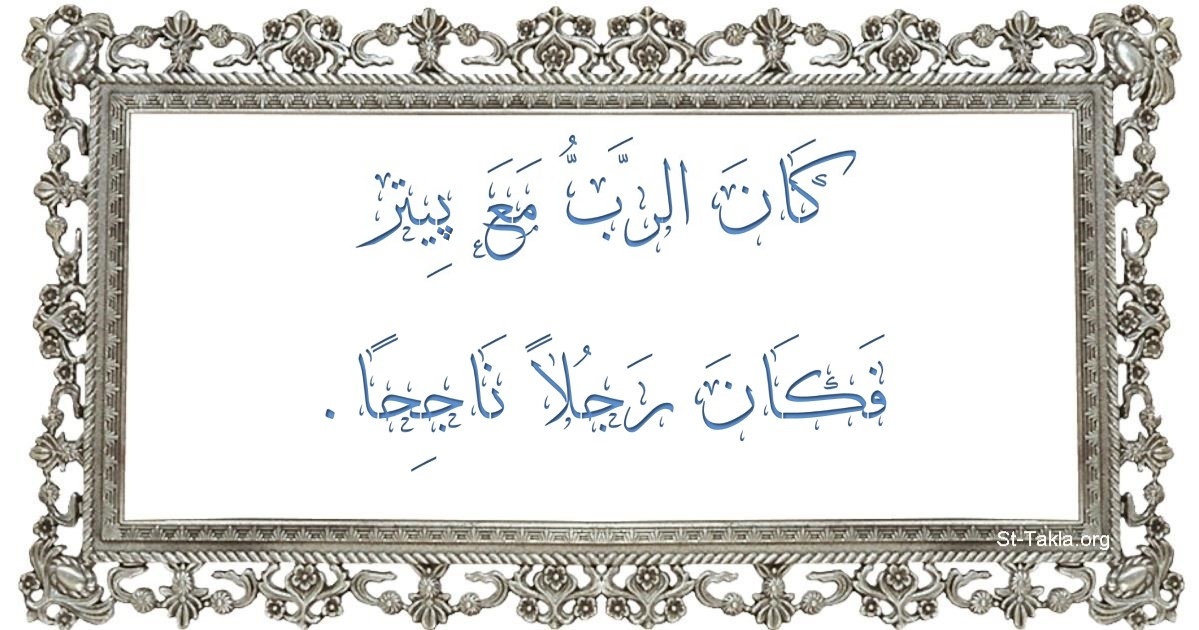 كَانَ الرَّبُّ مَعَ پِيتر
فَكَانَ رَجُلاً نَاجِحًا .
St-Takla.org